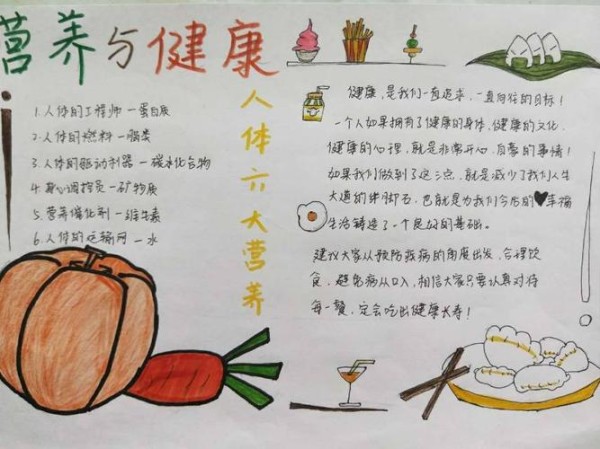 营养与健康
1.人体的工程师—蛋白质
2.人体的燃料—脂类
3.人体的驱动利器—碳水化合物
4.身心调控员—矿物质
5.营养催化剂—维生素
6.人体的运输网—水
人体六大营养
健康,是我们一直追求,一直向往的目标!
一个人如果拥有了健康的身体,健康的文化,
健康的心理,就是非常开心,自豪的事情!
如果我们做到了这3点,就是减少了我们人生
大道的绊脚石,也就是为我们今后的♥幸福
生活铸造了一个良好的基础。
建议大家从预防疾病的角度出发,合理饮
食,避免病从口入,相信大家只要认真对待
每一餐,定会吃出健康长寿!